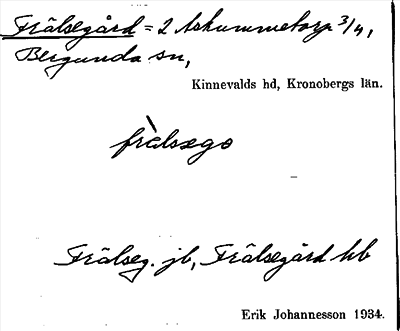 Frälsegård = 2 Askummetorp 3/4,
Bergunda sn,
Kinnevalds hd, Kronobergs län.
frὲlsægo
Frälseg. jb, Frälsegård hb
Erik Johannesson 1934.